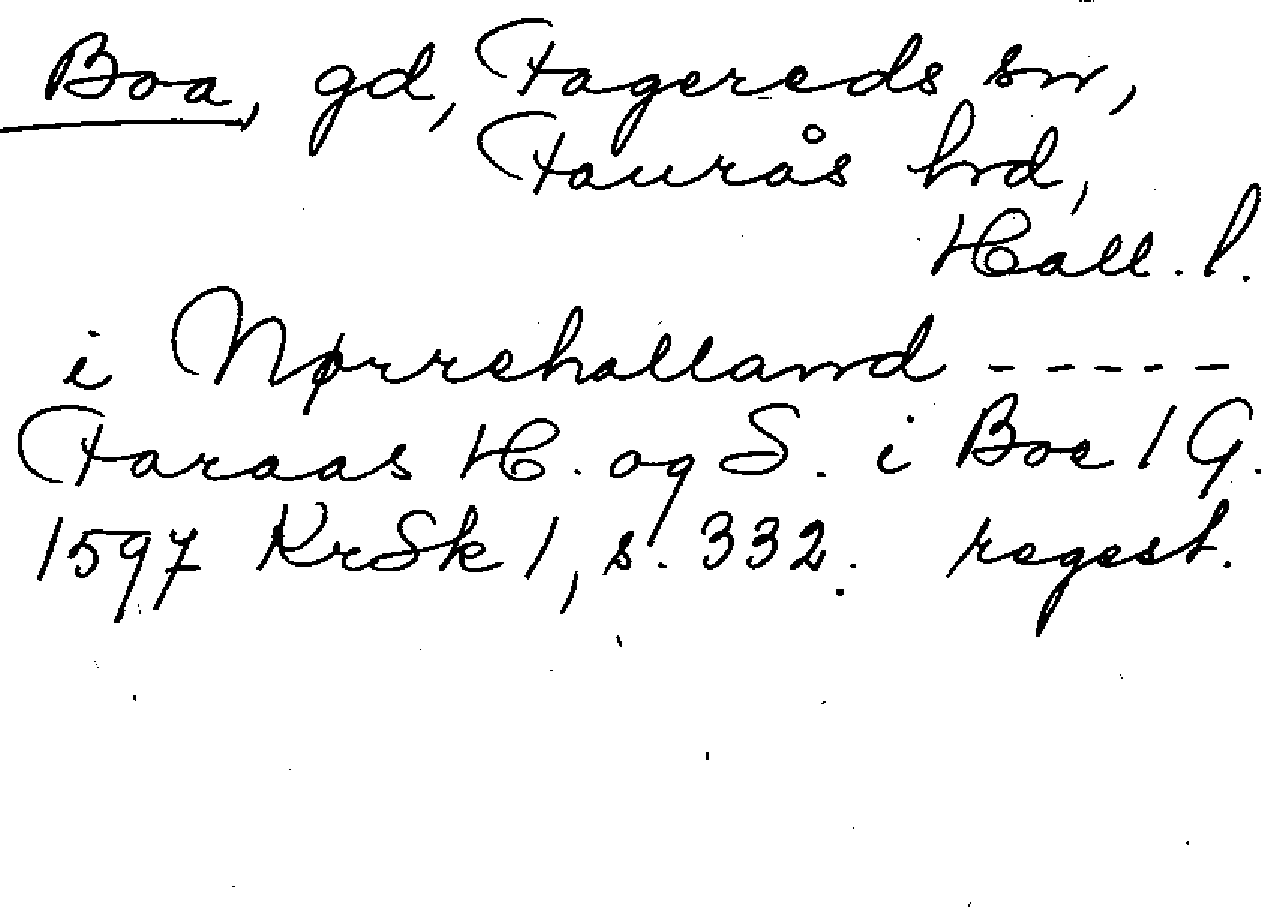 Boa, gd, Fagereds sn,
Faurås hrd,
Hall. l.
i Nørrehalland -----
Faraas H. og S. i Boe 1 G.
1597 KrSk 1, s. 332. regest.